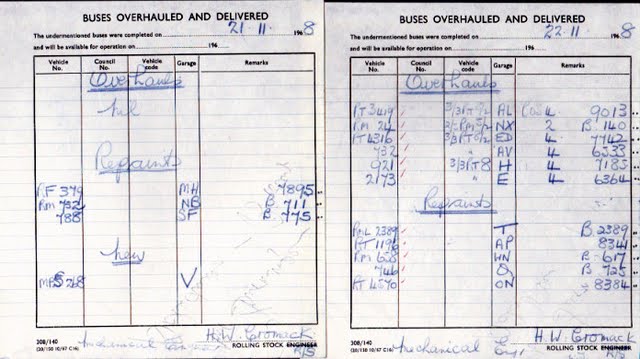 BUSES OVERHAULED AND DELIVERED
The undermentioned buses were completed on 21·11· 1968
and will be available for operation on 196
Vehicle No. Council No. Vehicle code Garage Remarks
Overhauls
nil
Repaints
RF 379 MH 7895
RM 732 NB B 711
788 SF B 775
New
MBS 268 V
H.W. Cromack
308/140
(20/150 10/67 C16) Mechanical ROLLING STOCK ENGINEER
BUSES OVERHAULED AND DELIVERED
The undermentioned buses were completed on 22·11· 1968
and will be available for operation on 196
Vehicle No. Council No. Vehicle code Garage Remarks
Overhauls
RT 3419 AL 4 9013
RM 24 NX 2 B 140
RT 4316 ED 4 7742
732 " AV 4 6533
921 3/3RT8 H 4 7185
2173 " E 4 6364
Repaints
RML 2389 T B 2389
RT 119 AP 8341
RM 628 WN B 617
746 Q B 725
RT 4570 ON 8384
H.W. Cromack
308/140
(20/150 10/67 C16) Mechanical ROLLING STOCK ENGINEER